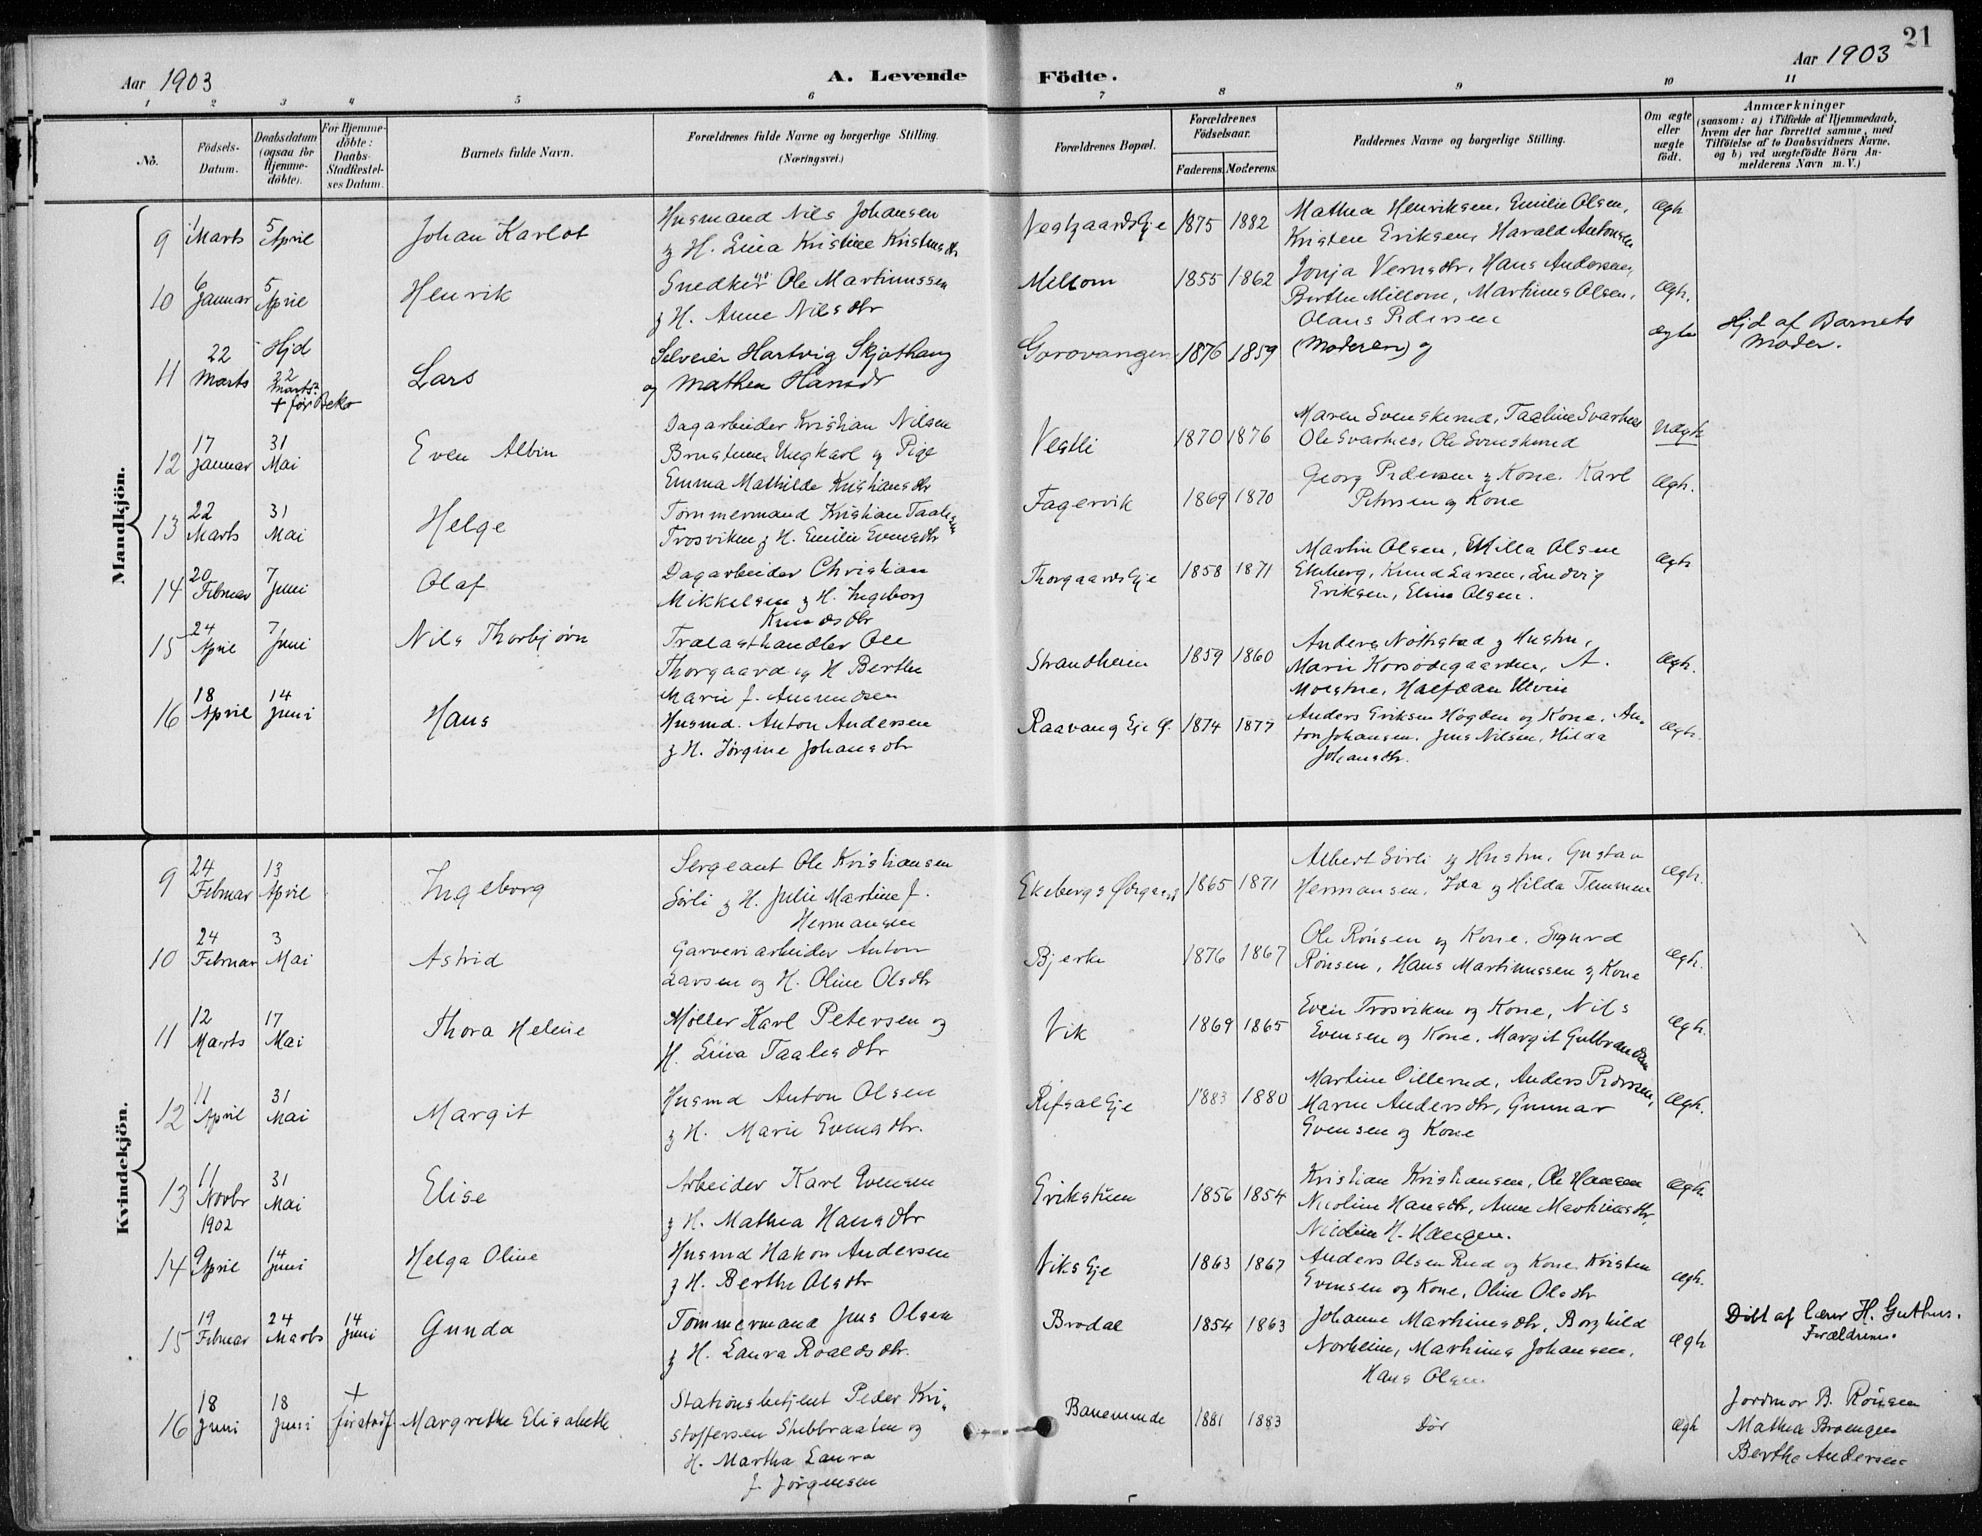 21
Aar 1903
A. Levende Födte.
Aar 1903
1 2 3 4 5 6 7 8 9 10 11
No.
Födsels-Datum.
Daabsdatum (ogsaa for Hjemmedöbte).
For Hjemmedöbte: Daabs-Stadfestelses Datum.
Barnets fulde Navn.
Forældrenes fulde Navne og borgerlige Stilling. (Næringsvei.)
Forældrenes Bopæl.
Forældrenes Födselsaar.
Faderens. Moderens.
Faddernes Navne og borgerlige Stilling.
Om ægte eller uægte födt.
Anmærkninger
(saasom: a) i Tilfælde af Hjemmedaab,
hvem der har forrettet samme, med
Tilföielse af to Daabsvidners Navne,
og b) ved uægtefödte Börn Anmelderens Navn m. V.)
Mandkjön.
9 1 Marts 5 April Johan Karlot
Husmand Nils Johansen
og H. Lina Kristine Kristensdtr
Vestgaards Eje 1875 1882
Mathea Henriksen, Emilie Olsen,
Kristen Eriksen, Harald Antonsen
Ægte
10 6 Januar 5 April Henrik
Snedker Ole Martinussen
og H. Anne Nilsdtr
Mellom 1855 1862
Hans Andersen,
Berthe Mellom, Martinus Olsen,
Olaus Pedersen
Ægte.
11 22 Marts Hjd 22 Marts
+ før Bekr
Lars
Selveier Hartvig Skjøthaug
og Mathea Hansdr
Gorovangen 1876 1859
(Moderen) og
ægte
Hjd af Barnets
Moder.
12 17 Januar 31 Mai Even Albin
Dagarbeider Kristian Nilsen
Ungkarl og Pige
Emma Mathilde Kristiansdtr
Vestli 1870 1876
Maren Svenskerud, Taaline Svarthes
Ole Svarthes, Ole Svenskerud
Uægte
13 22 Marts 31 Mai Helge
Tømmermand Kristian Taalesen
Trosviken og H. Emilie Evensdtr
Fagervik 1869 1870
Georg Pedersen og Kone. Karl
Petersen og Kone
Ægte.
14 20 Februar 7 Juni Olaf
Dagarbeider Christian
Mikkelsen og H. Ingeborg
Knudsdtr
Thorgaards Eje 1858 1871
Martin Olsen, Milla Olsen
Ekeberg, Knud Larsen, Ludvig
Eriksen, Oline Olsen.
Ægte
15 24 April 7 Juni Nils Thorbjørn
Trælasthandler Ole
Thorgaard og H Berthe
Marie f. Amundsen
Strandheim 1859 1860
Anders Nøttestad og Hustru,
Marie Korsødegaarden, A.
Moestue, Halfdan Ulvin
Ægte.
16 18 April 14 Juni Hans
Husmd. Anton Andersen
og H. Jørgine Johansdtr
Raavang Eje 1874 1877
Anders Eriksen Høgden og Kone. An-
ton Johansen, Jens Nilsen, Hilda
Johansdtr.
Ægte.
Kvindekjön.
9 24 Februar 13 April Ingeborg
Sergeant Ole Kristiansen
Sørli og H. Julie Martine f.
Hermansen
Ekebergs Øvrgaard 1865 1871
Albert Sørli og Hustru, Gustav
Hermansen, Ida og Hilda Temmen
Ægte.
10 24 Februar 3 Mai Astrid
Garveriarbeider Anton
Larsen og H. Oline Olsdtr
Bjerke 1876 1867
Ole Rönsen og Kone. Sigurd
Rönsen, Hans Martinussen og Kone
Ægte.
11 12 Marts 17 Mai Thora Helene
Møller Karl Petersen og
H. Lina Taalesdtr
Vik 1869 1865
Even Trosviken og Kone, Nils
Evensen og Kone. Margit Gulbrandsen
Ægte.
12 11 April 31 Mai Margit
Husmd Anton Olsen
og H. Marie Evensdtr.
Rifsal Eje 1883 1880
Martine Dillerud, Anders Pedersen,
Maren Andersdtr, Gunnar
Evensen og Kone
Ægte.
13 11 Novbr 1902 31 Mai Elise
Arbeider Karl Evensen
og H. Mathea Hansdtr
Erikstuen 1856 1854
Kristian Kristiansen, Ole Hansen
Nicoline Hansdtr, Anne Martinusdtr,
Nicoline H. Haugen.
Ægte
14 9 April 14 Juni Helga Oline
Husmd Hakon Andersen
og H. Berthe Olsdtr
Viks Eje 1863 1867
Anders Olsen Rud og Kone. Kristen
Evensen og Kone, Oline Olsdtr
Ægte.
15 19 Februar 24 Marts 14 Juni Gunda
Tømmermand Jens Olsen
og H. Laura Roaldsdtr.
Brodal 1854 1863
Johanne Martinusdtr, Borghild
Norheim, Martinus Johansen,
Hans Olsen
Ægte
Döbt af Lærer H. Guthus.
Forældrene.
16 18 Juni 18 Juni + før stadf. Margrethe Elisabeth
Stationsbetjent Peder Kri-
stoffersen Stubbraaten og
H. Martha Laura
f. Jørgensen
Baneminde 1881 1883
Dør
Ægte
Jordmor B. Rönsen
Mathea Braengen
Berthe Andersen